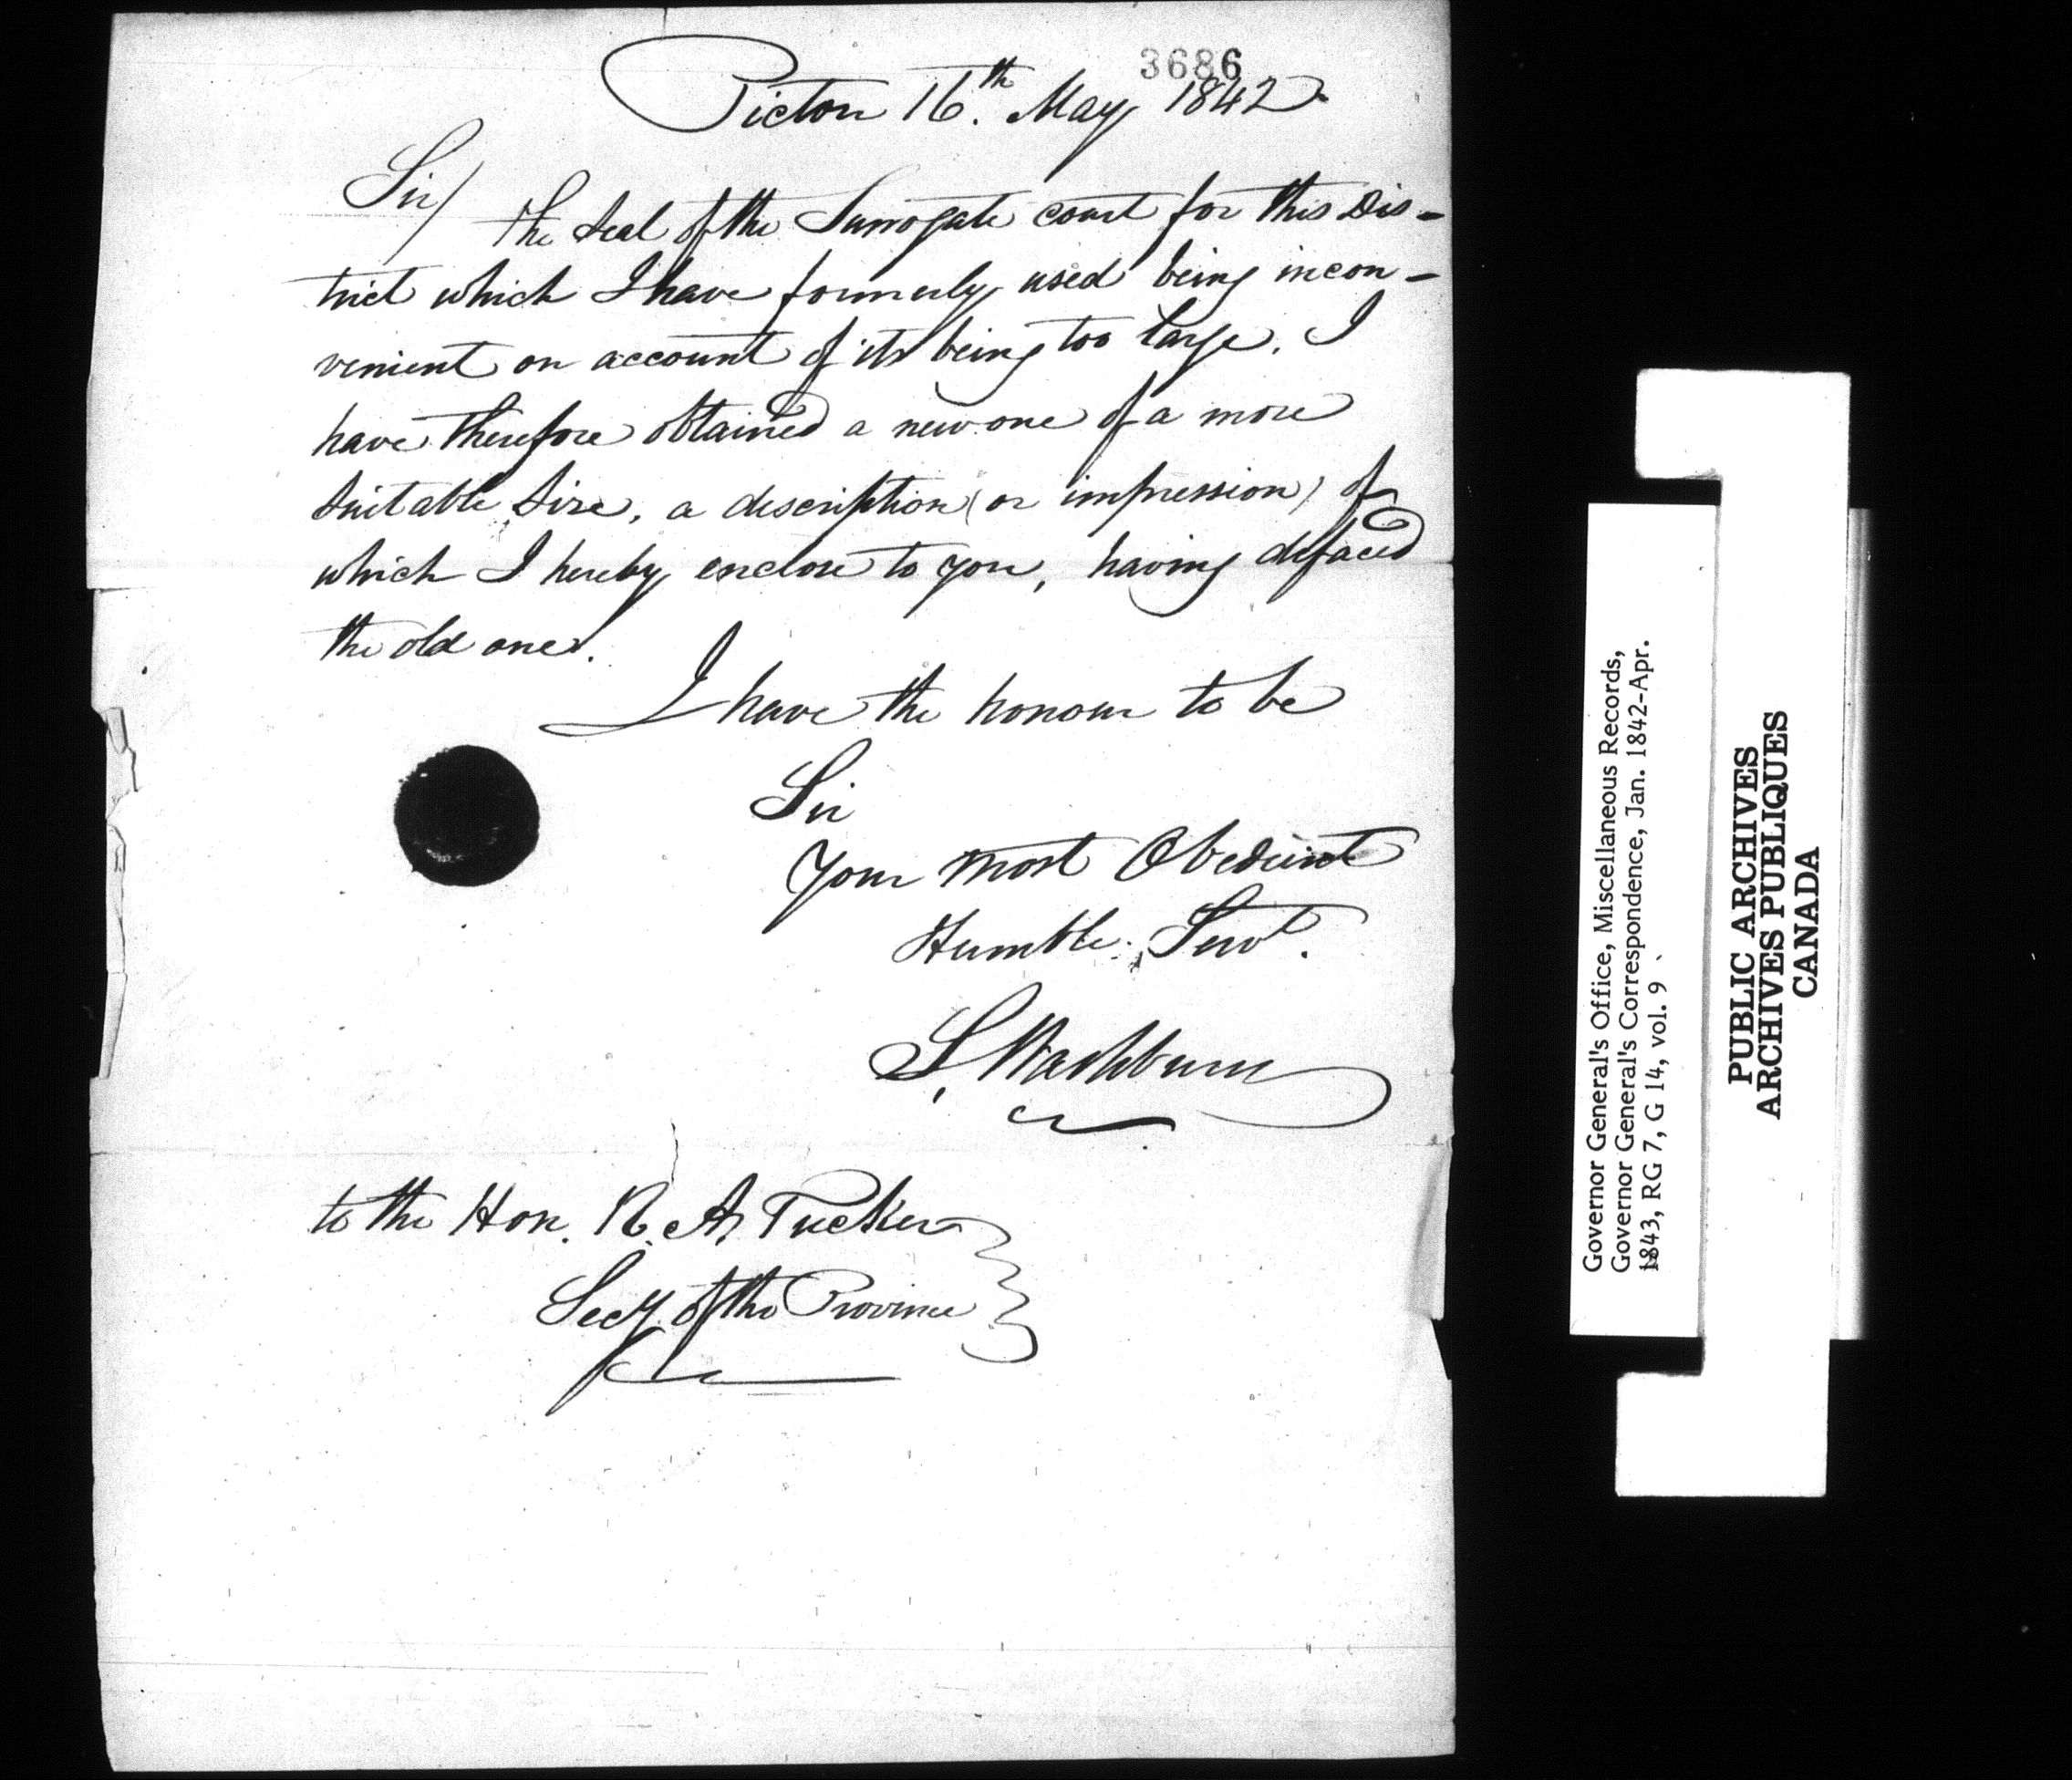 3686
Picton 16th. May 1842
Sir/ The Seal of the Surrogate court for this Dis-
trict which I have formerly used being incon-
venient on account of its being too large, I
have therefore obtained a new one of a more
Suitable Size, a description (or impression) of
which I hereby enclose to you, having defaced
the old one.
I have the honour to be
Sir
Your most Obedient
Humble Servt.
S, Washburn
to the Hon. R. A. Tucker
Secy. of the Province
Governor General's Office, Miscellaneous Records,
Governor General's Correspondence, Jan. 1842-Apr.
1843, RG 7, G 14, vol. 9
PUBLIC ARCHIVES
ARCHIVES PUBLIQUES
CANADA